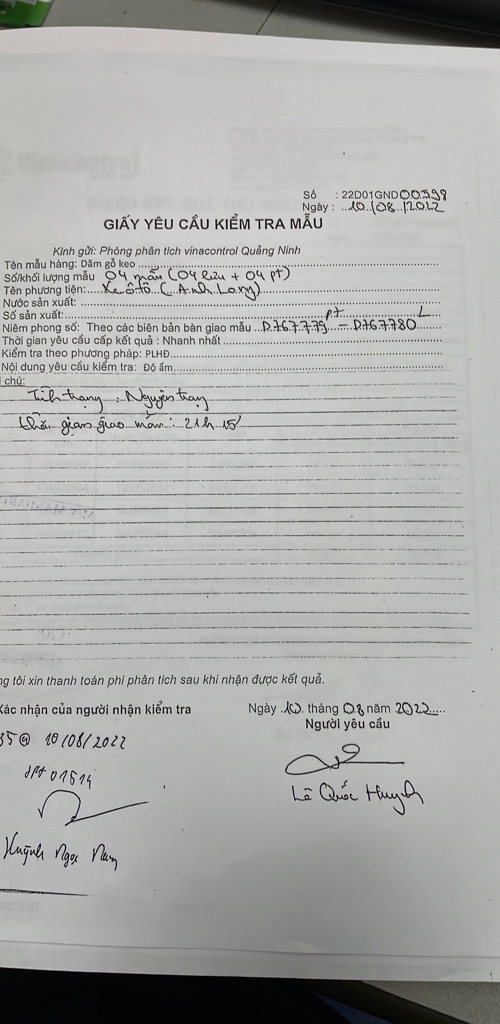 Số : 22D01GND00598
Ngày : 10/08/2022
GIẤY YÊU CẦU KIỂM TRA MẪU
Kính gửi: Phòng phân tích vinacontrol Quảng Ninh
Tên mẫu hàng: Dăm gỗ keo
Số/khối lượng mẫu 04 mẫu (04 lưu + 04 pt)
Tên phương tiện: Xe ô tô (Anh Long)
Nước sản xuất:
Số sản xuất:
pt L
Niêm phong số: Theo các biên bản bàn giao mẫu D.767779 – D767780
Thời gian yêu cầu cấp kết quả : Nhanh nhất
Kiểm tra theo phương pháp: PLHĐ
Nội dung yêu cầu kiểm tra: Độ ẩm
i chú:
Tình trạng : Nguyên trạng
thời gian giao mẫu : 21h 15'
ng tôi xin thanh toán phí phân tích sau khi nhận được kết quả.
Xác nhận của người nhận kiểm tra
Ngày 10 tháng 08 năm 2022
Người yêu cầu
35@ 10/08/2022
01514
Lê Quốc Huynh
Huỳnh Ngọc Nam